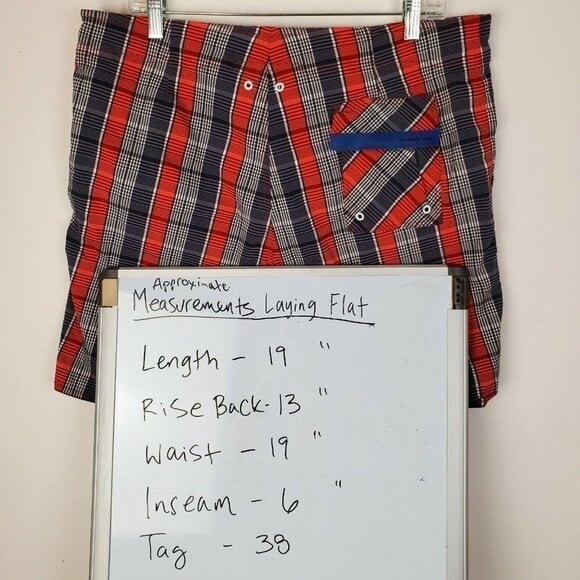 Approximate
Measurements Laying Flat
Length - 19 "
Rise Back - 13 "
Waist - 19 "
Inseam - 6 "
Tag - 38